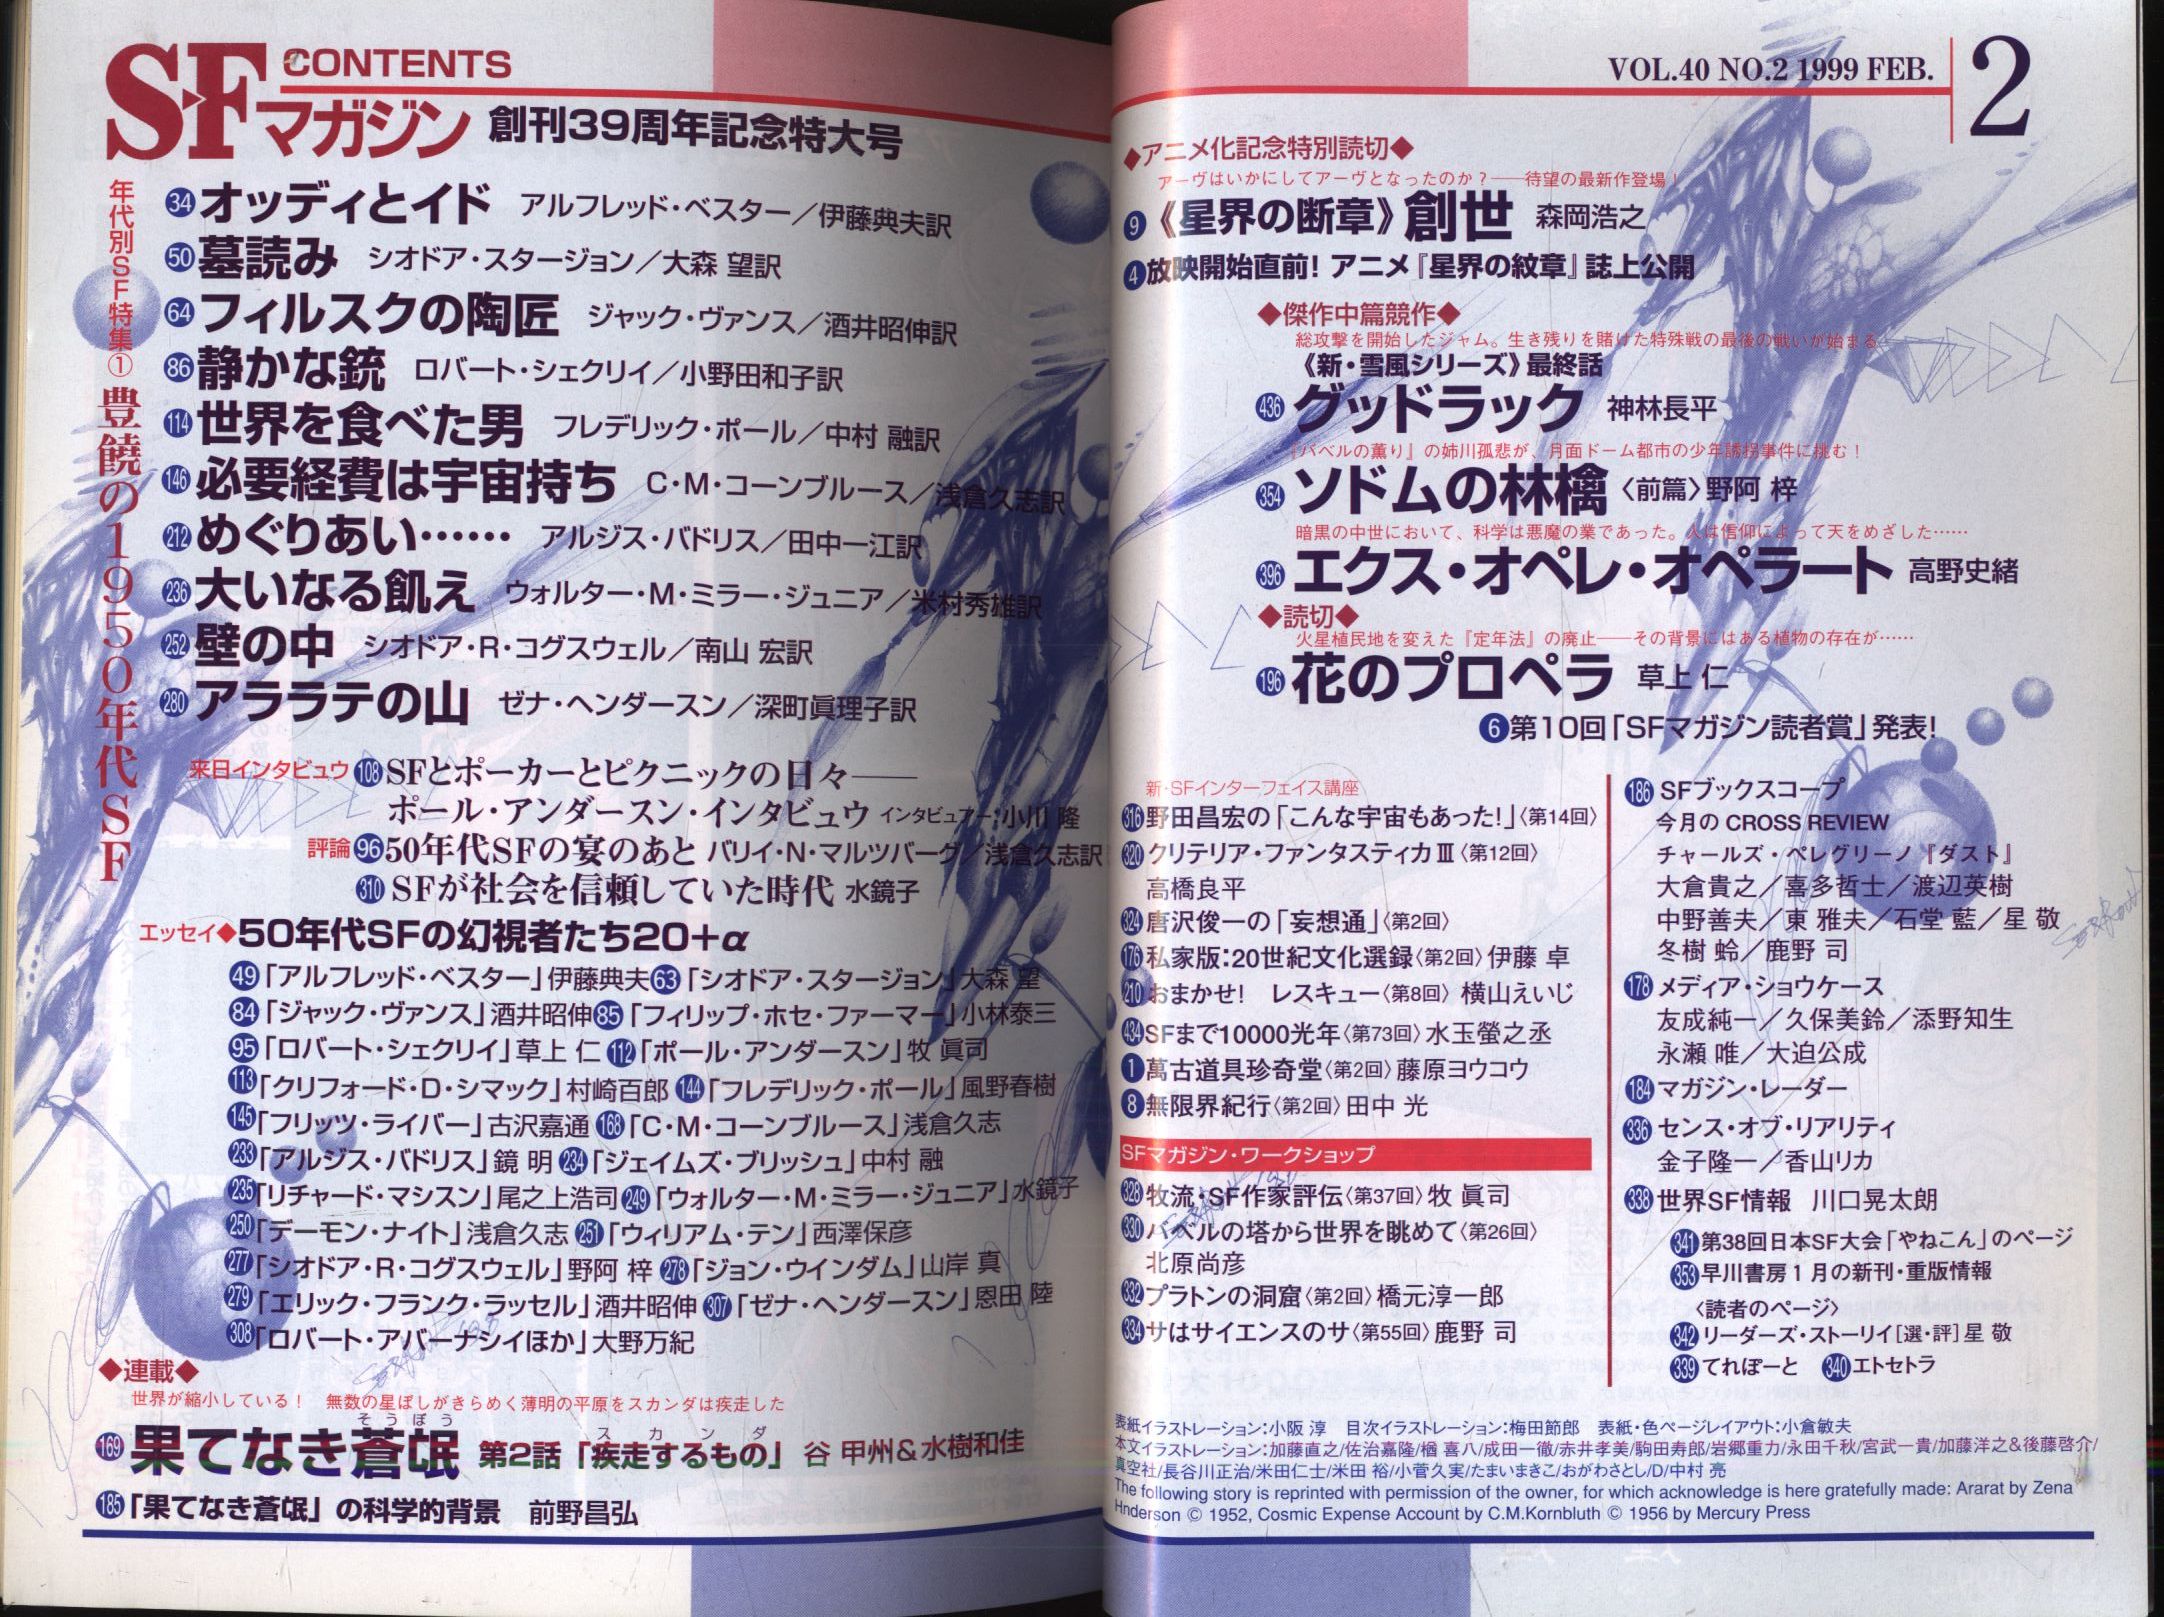 SFマガジン
CONTENTS
創刊39周年記念特大号
年代別SF特集① 豊饒の1950年代SF
34 オッディとイド アルフレッド・ベスター／伊藤典夫訳
50 墓読み シオドア・スタージョン／大森 望訳
64 フィルスクの陶匠 ジャック・ヴァンス／酒井昭伸訳
86 静かな銃 ロバート・シェクリイ／小野田和子訳
114 世界を食べた男 フレデリック・ポール／中村 融訳
146 必要経費は宇宙持ち C・M・コーンブルース／浅倉久志訳
212 めぐりあい…… アルジス・バドリス／田中一江訳
236 大いなる飢え ウォルター・M・ミラー・ジュニア／米村秀雄訳
252 壁の中 シオドア・R・コグスウェル／南山 宏訳
280 アララテの山 ゼナ・ヘンダースン／深町眞理子訳
来日インタビュウ 108 SFとポーカーとピクニックの日々——
ポール・アンダースン・インタビュウ インタビュアー・小川 隆
評論 96 50年代SFの宴のあと バリイ・N・マルツバーグ／浅倉久志訳
310 SFが社会を信頼していた時代 水鏡子
エッセイ◆50年代SFの幻視者たち20+α
49「アルフレッド・ベスター」伊藤典夫 63「シオドア・スタージョン」大森 望
84「ジャック・ヴァンス」酒井昭伸 85「フィリップ・ホセ・ファーマー」小林泰三
95「ロバート・シェクリイ」草上 仁 112「ポール・アンダースン」牧 眞司
113「クリフォード・D・シマック」村崎百郎 144「フレデリック・ポール」風野春樹
145「フリッツ・ライバー」古沢嘉通 168「C・M・コーンブルース」浅倉久志
233「アルジス・バドリス」鏡 明 234「ジェイムズ・ブリッシュ」中村 融
235「リチャード・マシスン」尾之上浩司 249「ウォルター・M・ミラー・ジュニア」水鏡子
250「デーモン・ナイト」浅倉久志 251「ウィリアム・テン」西澤保彦
277「シオドア・R・コグスウェル」野阿 梓 278「ジョン・ウインダム」山岸 真
279「エリック・フランク・ラッセル」酒井昭伸 307「ゼナ・ヘンダースン」恩田 陸
308「ロバート・アバーナシイほか」大野万紀
◆連載◆
世界が縮小している！ 無数の星ぼしがきらめく薄明の平原をスカンダは疾走した
そうぼう スカンダ
169 果てなき蒼氓 第2話「疾走するもの」 谷 甲州＆水樹和佳
185「果てなき蒼氓」の科学的背景 前野昌弘
VOL.40 NO.2 1999 FEB. 2
◆アニメ化記念特別読切◆
アーヴはいかにしてアーヴとなったのか？——待望の最新作登場！
9 《星界の断章》創世 森岡浩之
4 放映開始直前！ アニメ『星界の紋章』誌上公開
◆傑作中篇競作◆
総攻撃を開始したジャム。生き残りを賭けた特殊戦の最後の戦いが始まる
《新・雪風シリーズ》最終話
436 グッドラック 神林長平
『バベルの薫り』の姉川孤悲が、月面ドーム都市の少年誘拐事件に挑む！
354 ソドムの林檎〈前篇〉野阿 梓
暗黒の中世において、科学は悪魔の業であった。人は信仰によって天をめざした……
396 エクス・オペレ・オペラート 高野史緒
◆読切◆
火星植民地を変えた『定年法』の廃止——その背景にはある植物の存在が……
196 花のプロペラ 草上 仁
6 第10回「SFマガジン読者賞」発表！
新・SFインターフェイス講座
316 野田昌宏の「こんな宇宙もあった！」〈第14回〉
320 クリテリア・ファンタスティカⅢ〈第12回〉
高橋良平
324 唐沢俊一の「妄想通」〈第2回〉
176 私家版：20世紀文化選録〈第2回〉伊藤 卓
210 おまかせ！ レスキュー〈第8回〉 横山えいじ
434 SFまで10000光年〈第73回〉水玉螢之丞
1 萬古道具珍奇堂〈第2回〉藤原ヨウコウ
8 無限界紀行〈第2回〉田中 光
SFマガジン・ワークショップ
328 牧流・SF作家評伝〈第37回〉牧 眞司
330 バベルの塔から世界を眺めて〈第26回〉
北原尚彦
332 プラトンの洞窟〈第2回〉橋元淳一郎
334 サはサイエンスのサ〈第55回〉鹿野 司
186 SFブックスコープ
今月の CROSS REVIEW
チャールズ・ペレグリーノ『ダスト』
大倉貴之／喜多哲士／渡辺英樹
中野善夫／東 雅夫／石堂 藍／星 敬
冬樹 蛉／鹿野 司
178 メディア・ショウケース
友成純一／久保美鈴／添野知生
永瀬 唯／大迫公成
184 マガジン・レーダー
336 センス・オブ・リアリティ
金子隆一／香山リカ
338 世界SF情報 川口晃太朗
341 第38回日本SF大会「やねこん」のページ
353 早川書房1月の新刊・重版情報
〈読者のページ〉
342 リーダーズ・ストーリイ［選・評］星 敬
339 てれぽーと 340 エトセトラ
表紙イラストレーション：小阪 淳 目次イラストレーション：梅田節郎 表紙・色ページレイアウト：小倉敏夫
本文イラストレーション：加藤直之/佐治嘉隆/楢 喜八/成田一徹/赤井孝美/駒田寿郎/岩郷重力/永田千秋/宮武一貴/加藤洋之&後藤啓介/
真空社/長谷川正治/米田仁士/米田 裕/小菅久実/たまいまきこ/おがわさとし/D/中村 亮
The following story is reprinted with permission of the owner, for which acknowledge is here gratefully made: Ararat by Zena
Hnderson © 1952, Cosmic Expense Account by C.M.Kornbluth © 1956 by Mercury Press